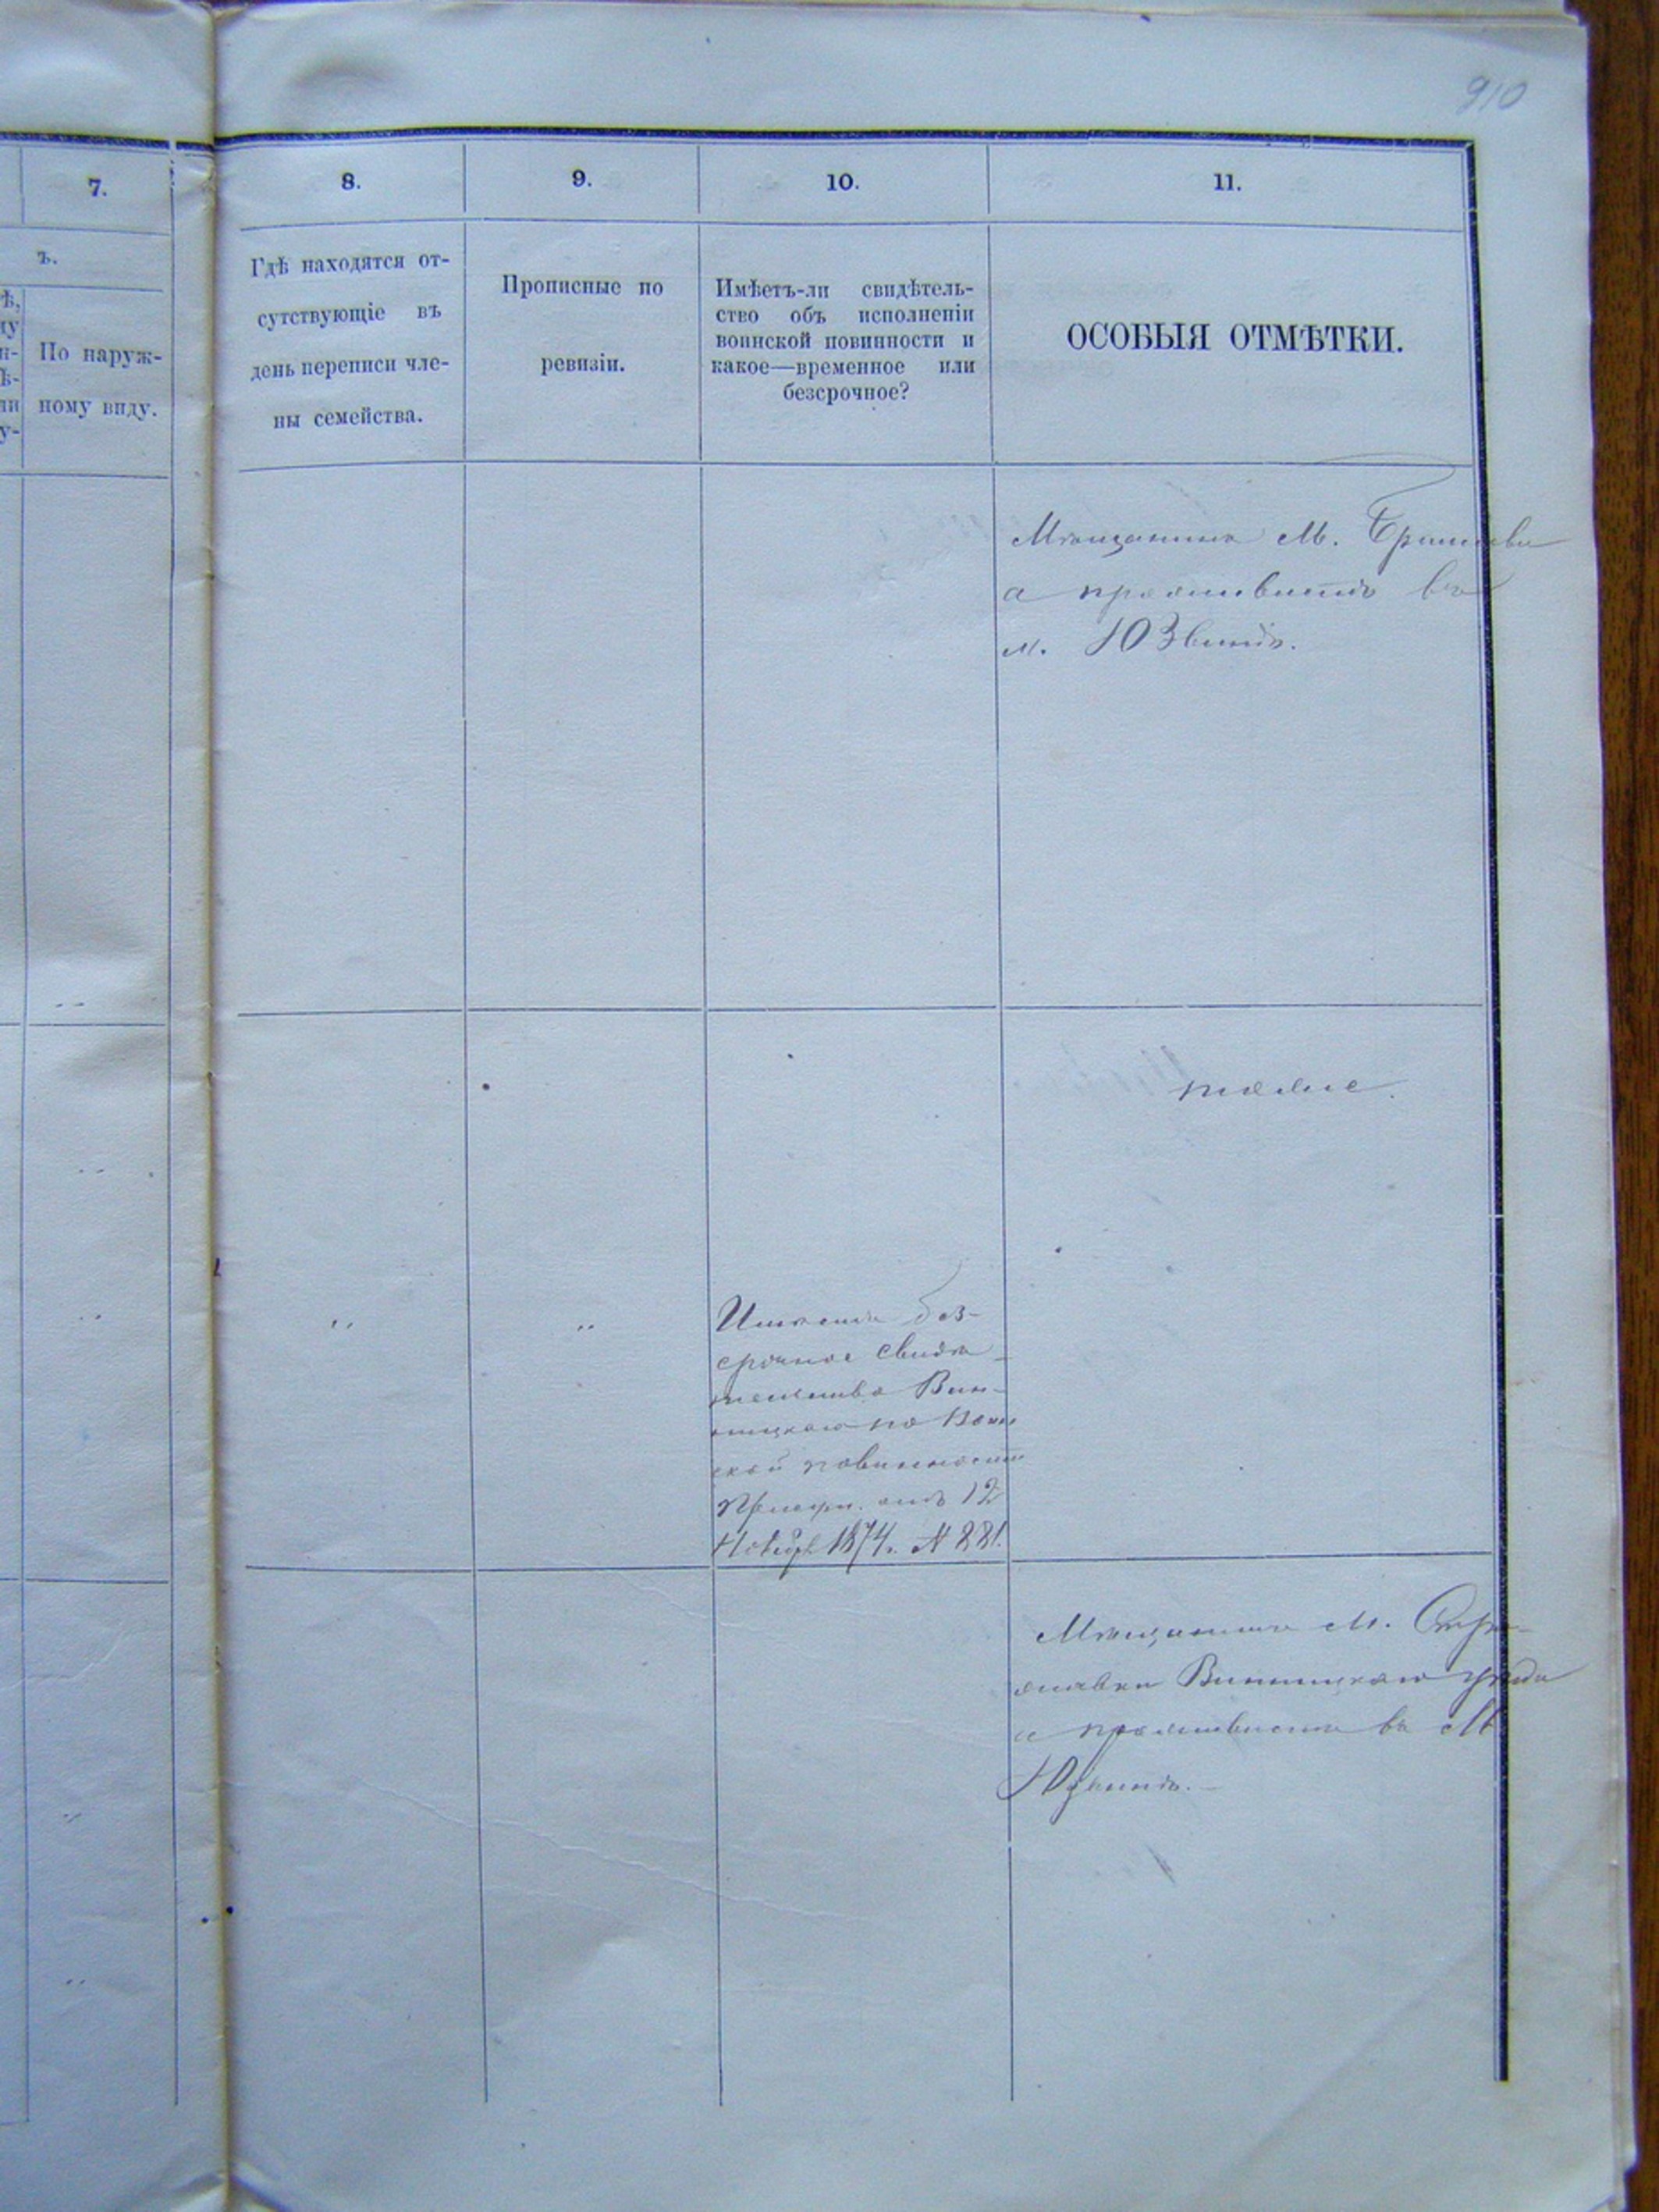 910
7.
8.
9.
10.
11.
ъ.
По наруж-
ному виду.
Гдѣ находятся от-
сутствующіе въ
день переписи чле-
ны семейства.
Прописные по
ревизіи.
Имѣетъ-ли свидѣтель-
ство объ исполненіи
воинской повинности и
какое—временное или
безсрочное?
ОСОБЫЯ ОТМѢТКИ.
Мѣщанинъ М.
а проживаетъ въ
м. Юзвинѣ.
тоже.
Имѣетъ без-
срочное свидѣ-
тельство Вин-
ницкаго по Воин
ской повинности
Присут. отъ 12
Ноября 1874 г. № 881.
Мѣщанинъ М. Стри-
жавки Винницкаго уѣзда
а проживаетъ въ М
Юзвинѣ.